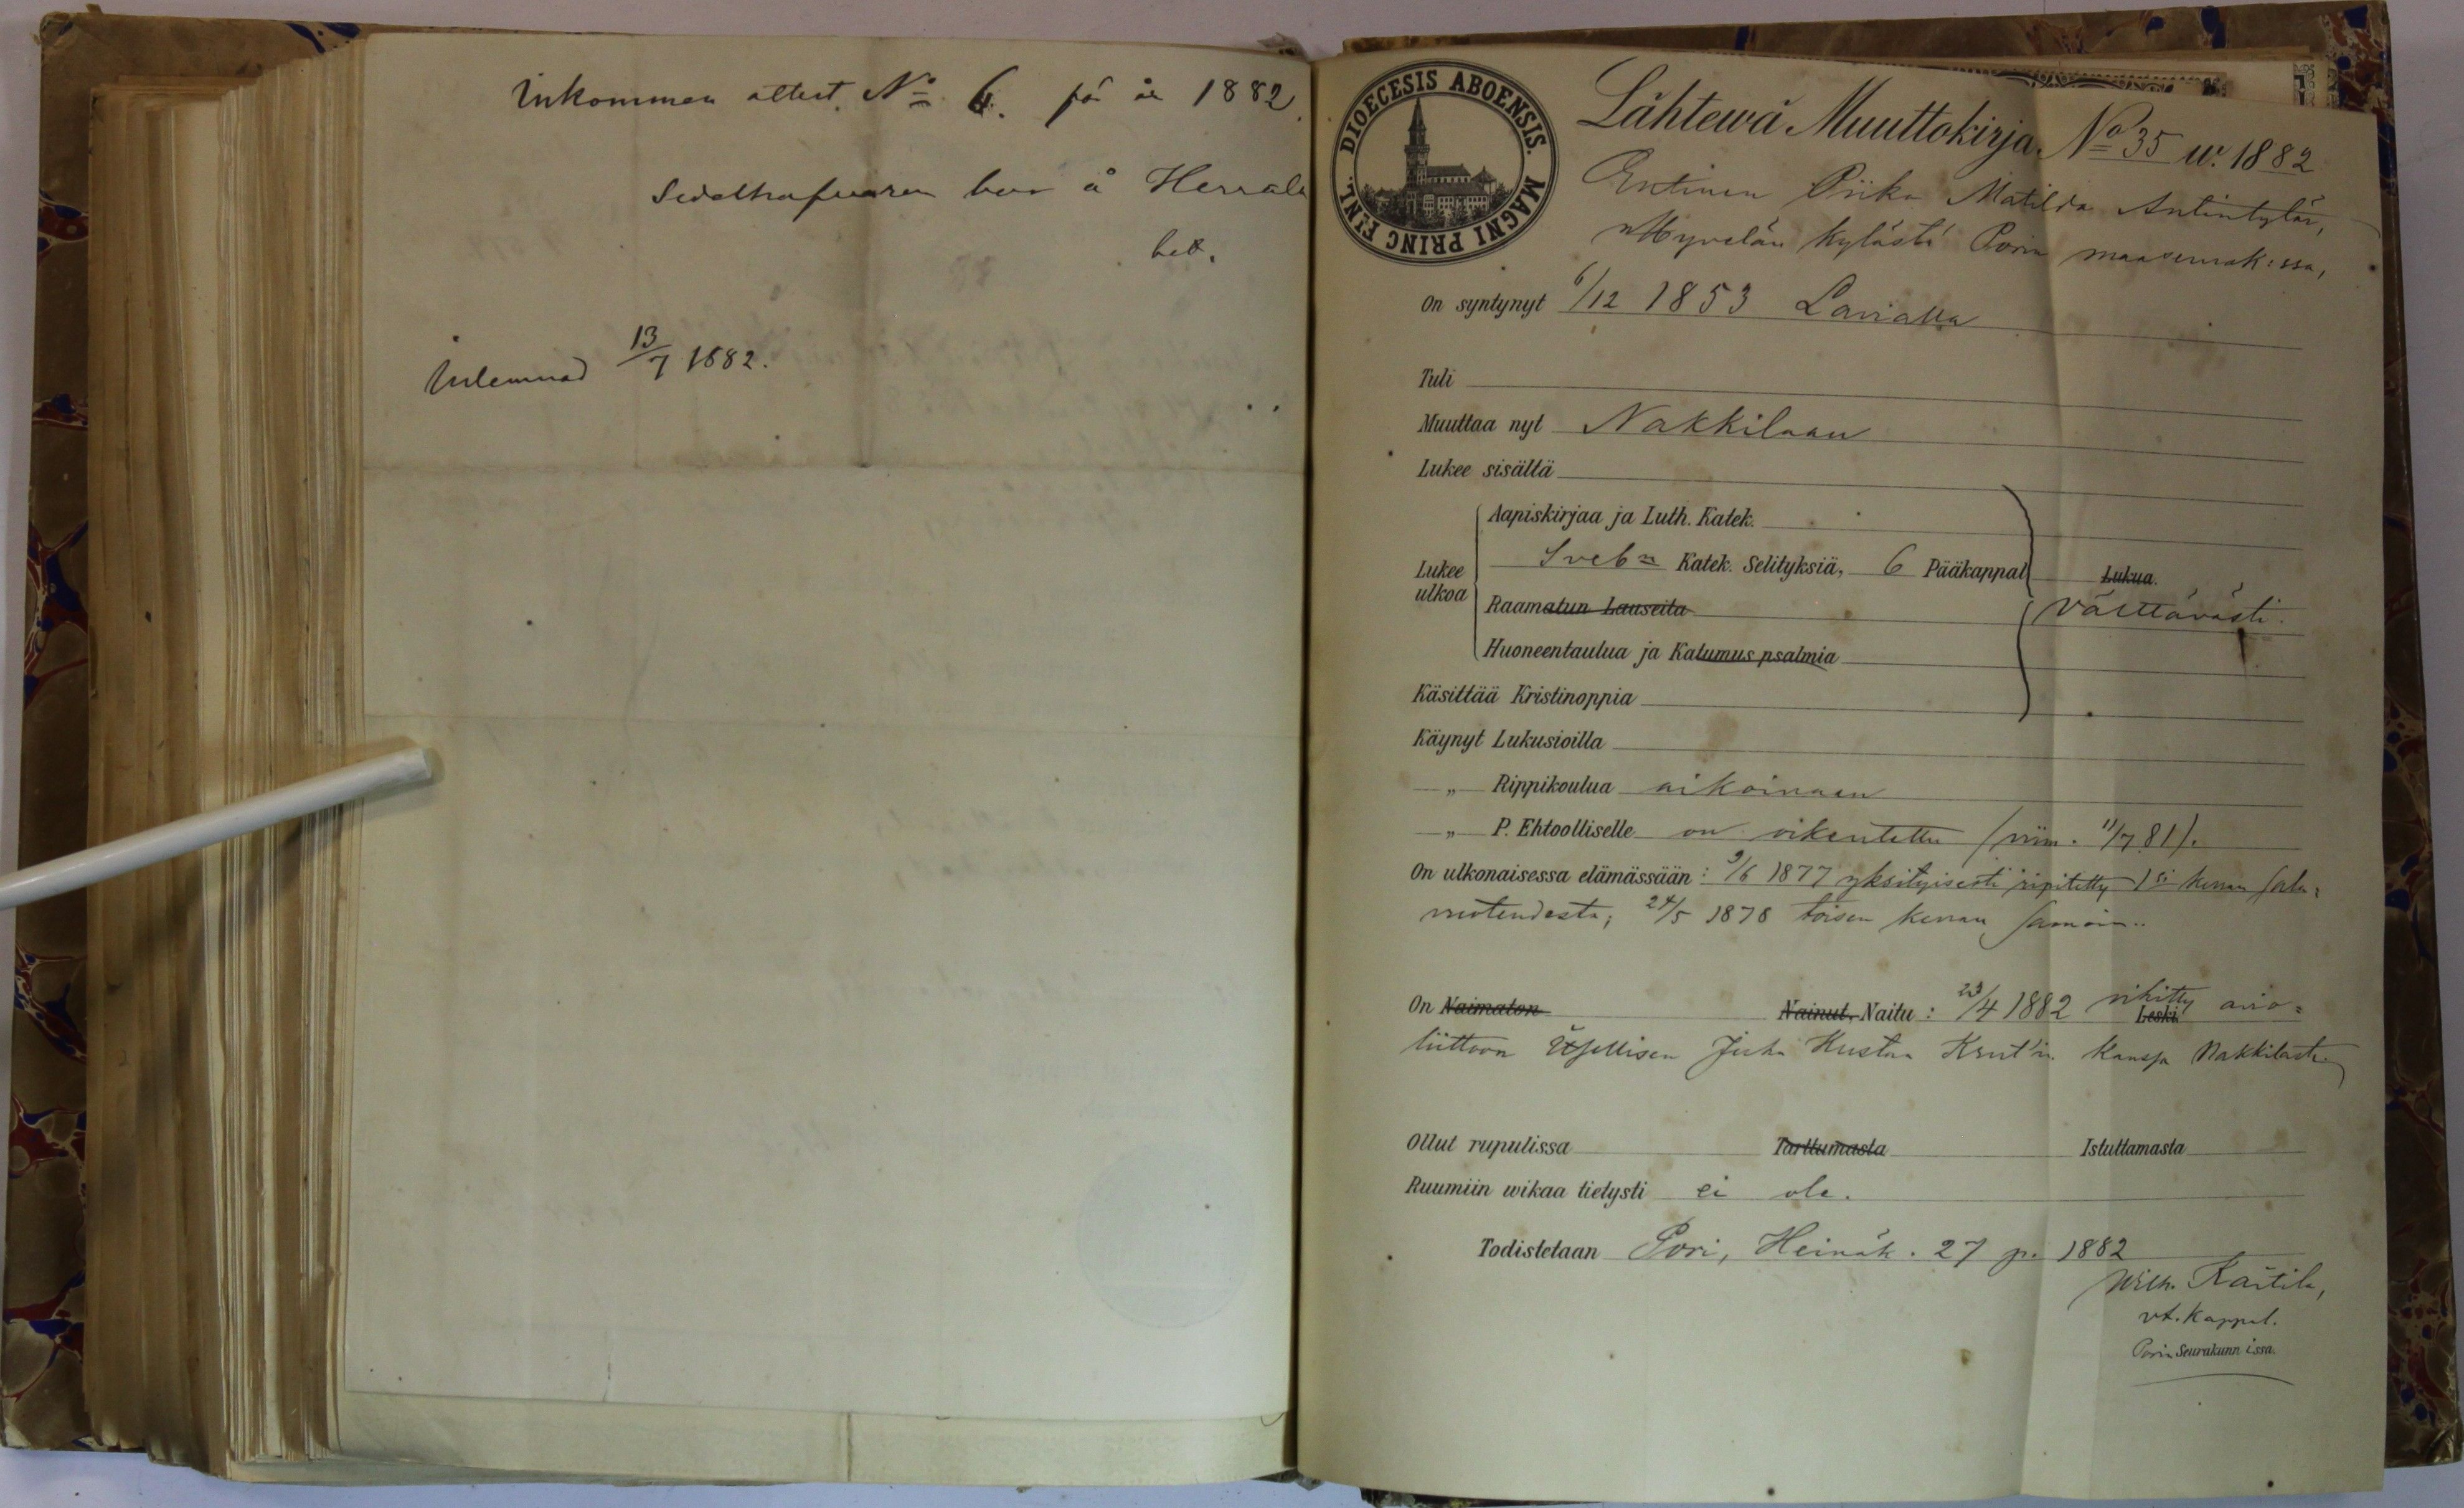 Inkommen attest. No 6. för år 1882.
Sedelhafvaren bor å Herrala
hed.
Inlemnad 13/7 1882.
DIOECESIS ABOENSIS. MAGNI PRINC FENL.
Lähtewä Muuttokirja. No 35 w. 1882
Entinen Piika Matilda Antintytär,
Hyvelän kylästä Porin maaseurak:ssa,
On syntynyt 6/12 1853 Lavialla
Tuli
Muuttaa nyt Nakkilaan
Lukee sisältä
Aapiskirjaa ja Luth. Katek.
Lukee ulkoa Sveb:n Katek. Selityksiä, 6 Pääkappal Lukua.
Raamatun Lauseita välttävästi.
Huoneentaulua ja Katumus psalmia
Käsittää Kristinoppia
Käynyt Lukusioilla
„ Rippikoulua aikoinaan
„ P. Ehtoolliselle on oikeutettu (viim. 11/7 81).
On ulkonaisessa elämässään: 9/6 1877 yksityisesti ripitetty 1si kerran sala=
vuoteudesta; 24/5 1878 toisen kerran samoin..
On Naimaton Nainut. Naitu: 23/4 1882 vihitty Leski avio=
liittoon Itsellisen Juha Kustaa Krut'in kanssa Nakkilasta.
Ollut rupulissa Tarttumasta Istuttamasta
Ruumiin wikaa tietysti ei ole.
Todistetaan Pori, Heinäk. 27 p. 1882
Wilh. Kärtilä,
vt. Kappal.
Porin Seurakunn issa.